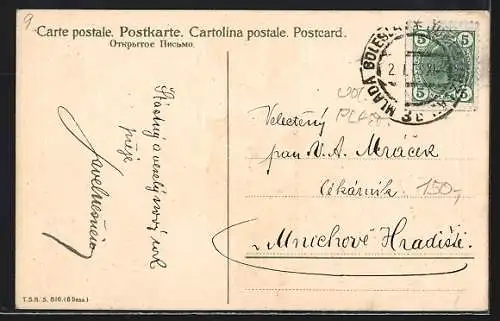 9
Carte postale. Postkarte. Cartolina postale. Postcard.
Открытое Письмо.
5 5
5 5
MLADÁ BOLESLAV
3c
Šťastný a veselý nový rok
přeje
Velectěný
pan V. A. Mráček
lékárník.
150,-
Mnichově Hradiště.
T.S.N. S. 616. (6 Dess.)